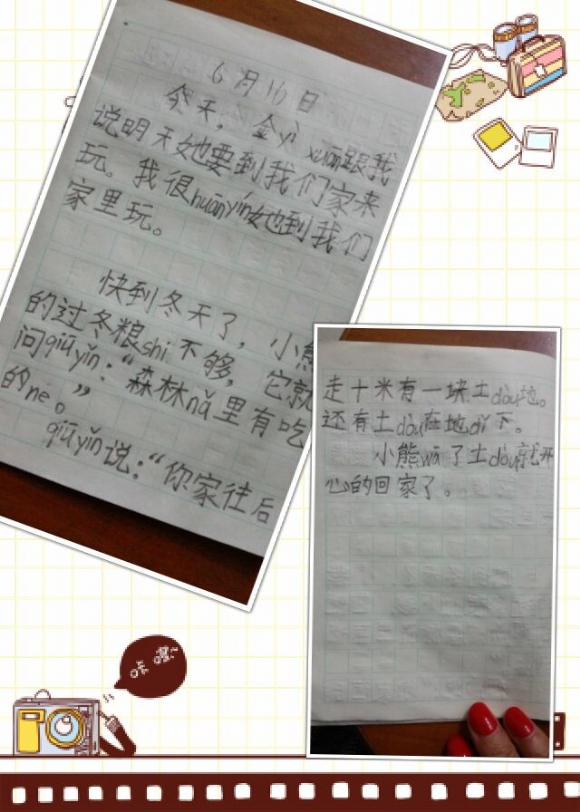 6月16日
今天，金yì xuān跟我
说明天她要到我们家来
玩。我很huānyín她到我们
家里玩。
快到冬天了，小熊
的过冬粮shi不够，它就
问qiūyǐn：“森林nǎ里有吃
的ne。”
qiūyǐn说：“你家往后
走十米有一块土dòu地。
还有土dòu在地dǐ下。
小熊wā了土dòu就开
心的回家了。
咔嚓~